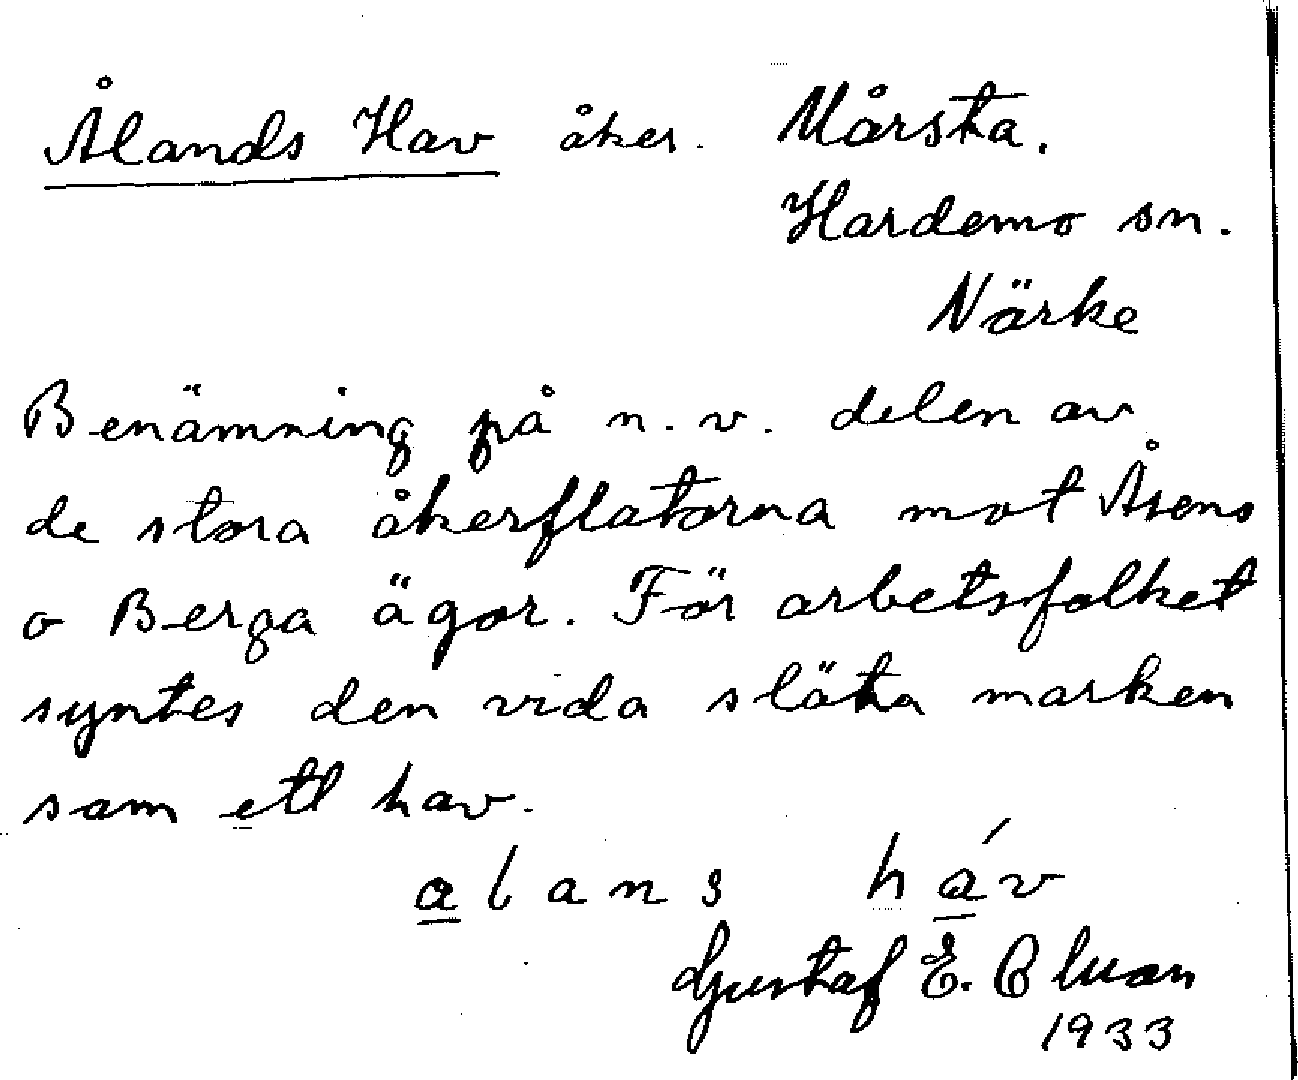 Ålands Hav åker. Mårsta.
Hardemo sn.
Närke
Benämning på n.v. delen av
de stora åkerflatorna mot Åsens
o Berga ägor. För arbetsfolket
syntes den vida släta marken
som ett hav.
alans háv
Gustaf E.
1933